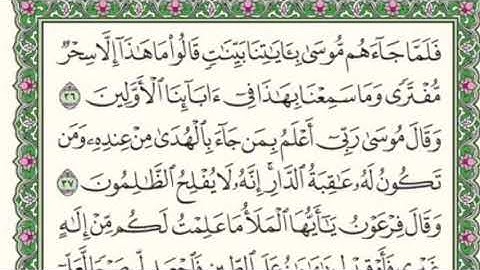 فَلَمَّا جَآءَهُم مُّوسَىٰ بِـَٔايَٰتِنَا بَيِّنَٰتٍ قَالُوا۟ مَا هَٰذَآ إِلَّا سِحْرٌ
مُّفْتَرًى وَمَا سَمِعْنَا بِهَٰذَا فِىٓ ءَابَآئِنَا ٱلْأَوَّلِينَ ٣٦
وَقَالَ مُوسَىٰ رَبِّىٓ أَعْلَمُ بِمَن جَآءَ بِٱلْهُدَىٰ مِنْ عِندِهِۦ وَمَن
تَكُونُ لَهُۥ عَٰقِبَةُ ٱلدَّارِ ۖ إِنَّهُۥ لَا يُفْلِحُ ٱلظَّٰلِمُونَ ٣٧
وَقَالَ فِرْعَوْنُ يَٰٓأَيُّهَا ٱلْمَلَأُ مَا عَلِمْتُ لَكُم مِّنْ إِلَٰهٍ